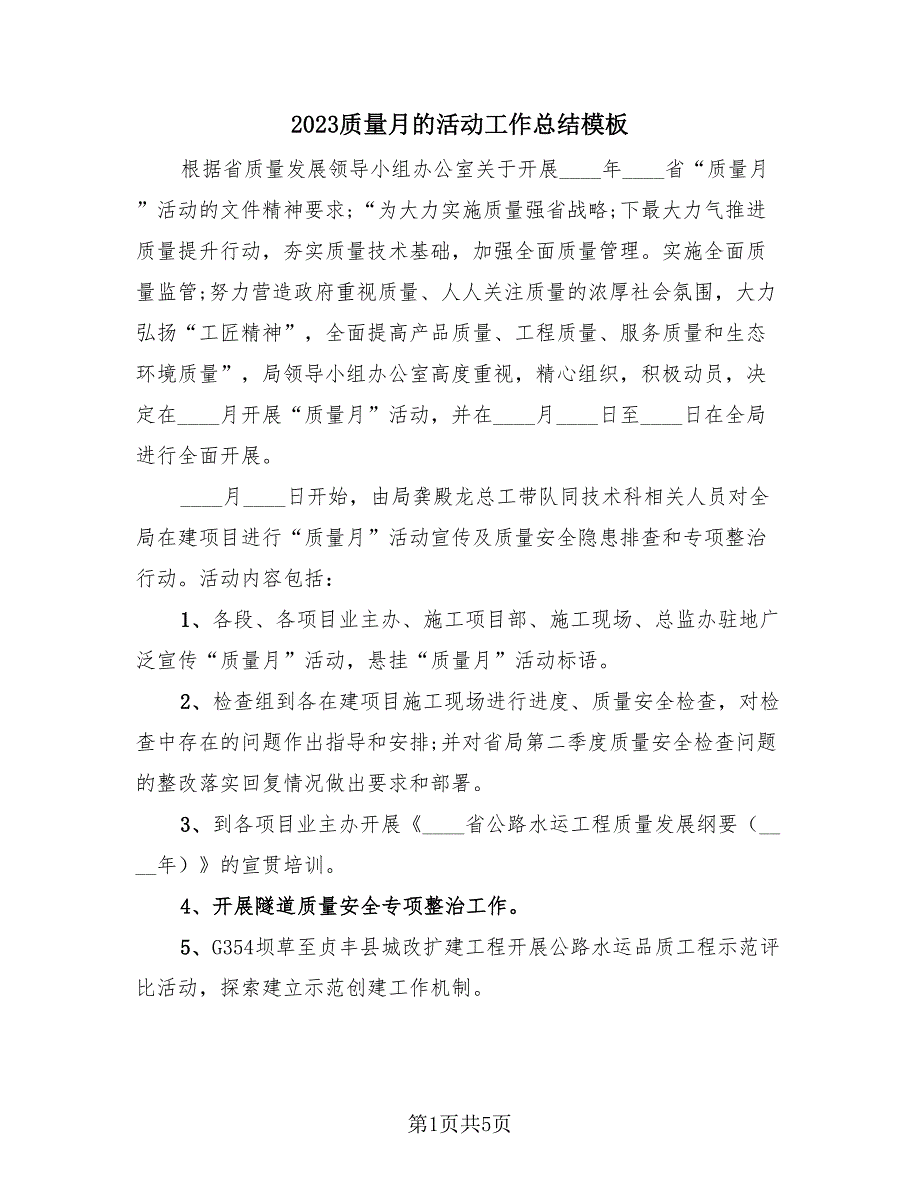 2023质量月的活动工作总结模板
根据省质量发展领导小组办公室关于开展____年____省“质量月
”活动的文件精神要求;“为大力实施质量强省战略;下最大力气推进
质量提升行动，夯实质量技术基础，加强全面质量管理。实施全面质
量监管;努力营造政府重视质量、人人关注质量的浓厚社会氛围，大力
弘扬“工匠精神”，全面提高产品质量、工程质量、服务质量和生态
环境质量”，局领导小组办公室高度重视，精心组织，积极动员，决
定在____月开展“质量月”活动，并在____月____日至____日在全局
进行全面开展。
____月____日开始，由局龚殿龙总工带队同技术科相关人员对全
局在建项目进行“质量月”活动宣传及质量安全隐患排查和专项整治
行动。活动内容包括：
1、各段、各项目业主办、施工项目部、施工现场、总监办驻地广
泛宣传“质量月”活动，悬挂“质量月”活动标语。
2、检查组到各在建项目施工现场进行进度、质量安全检查，对检
查中存在的问题作出指导和安排;并对省局第二季度质量安全检查问题
的整改落实回复情况做出要求和部署。
3、到各项目业主办开展《____省公路水运工程质量发展纲要（__
__年）》的宣贯培训。
4、开展隧道质量安全专项整治工作。
5、G354坝草至贞丰县城改扩建工程开展公路水运品质工程示范评
比活动，探索建立示范创建工作机制。
第1页共5页